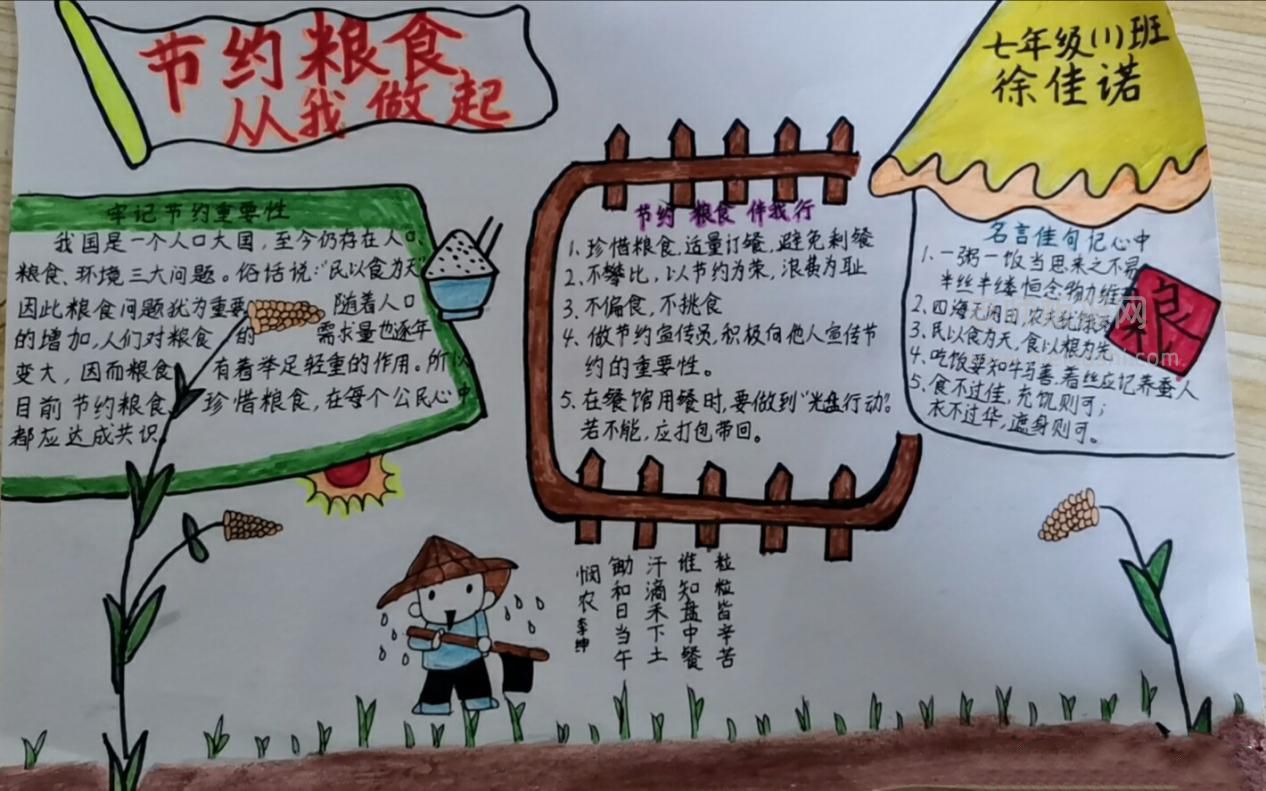 节约粮食
从我做起
七年级(1)班
徐佳诺
牢记节约重要性
我国是一个人口大国，至今仍存在人口、
粮食、环境三大问题。俗话说："民以食为天"
因此粮食问题犹为重要 随着人口
的增加，人们对粮食 的 需求量也逐年
变大，因而粮食 有着举足轻重的作用。所以
目前节约粮食、珍惜粮食，在每个公民心中
都应达成共识。
节约 粮食 伴我行
1. 珍惜粮食，适量订餐，避免剩餐
2. 不攀比，以节约为荣，浪费为耻
3. 不偏食，不挑食
4. 做节约宣传员，积极向他人宣传节
约的重要性。
5. 在餐馆用餐时，要做到"光盘行动"。
若不能，应打包带回。
名言佳句记心中
1. 一粥一饭当思来之不易
半丝半缕恒念物力维
2. 四海无闲田，农夫犹饿
3. 民以食为天，食以粮为先
4. 吃饭要知牛马善，着丝应记养蚕人
5. 食不过佳，充饥则可；
衣不过华，遮身则可。
粮
悯农 李绅
锄和日当午
汗滴禾下土
谁知盘中餐
粒粒皆辛苦